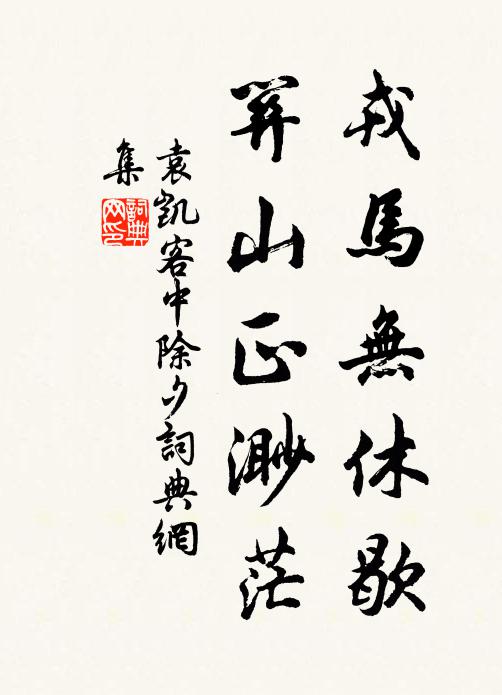 戎馬無休歇
關山正渺茫
袁凱客中除夕詞典網
集
詞典網印